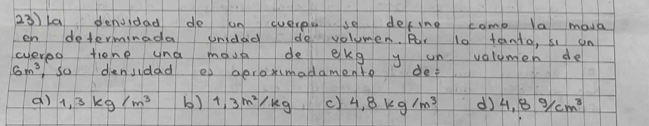 23) La densidad de un cuerpo se define como la masa
en determinada unidad de volumen. Por lo tanto, si un
cuerpo tiene una masa de 8kg y un volumen de
6m³, so densidad es aproximadamente de:
a) 1,3 kg/m³ b) 1,3 m³/kg c) 4,8 kg/m³ d) 4,8 g/cm³